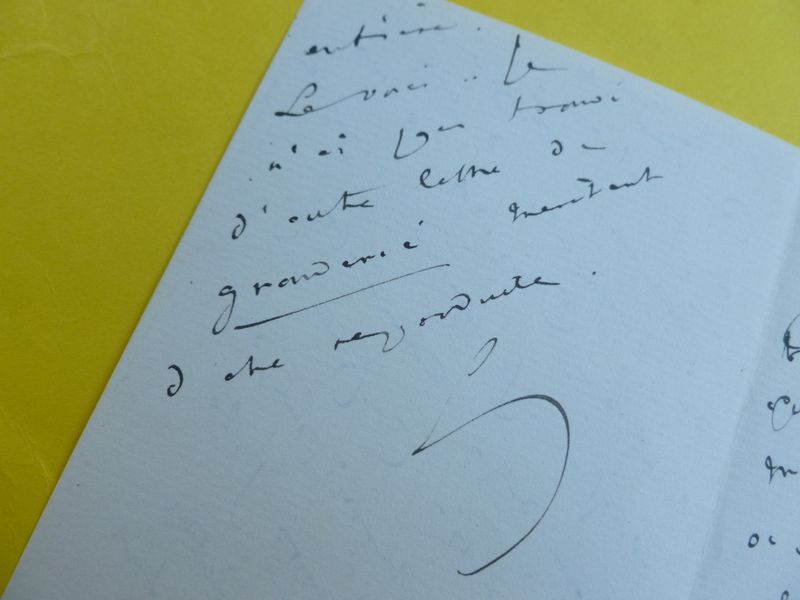 entière.
Le voici .. Je
n'ai pas trouvé
d'autre lettre de
méritant
d'être reproduite.